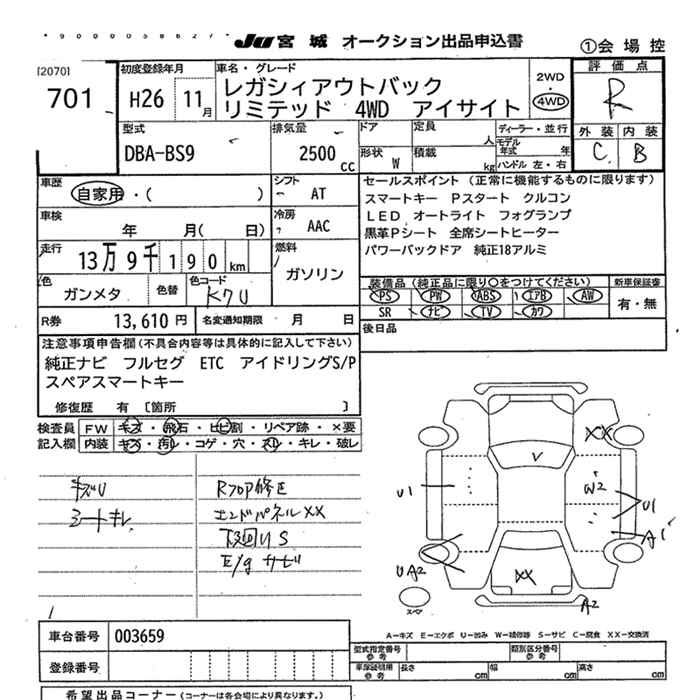 *9000058627*
JU 宮城 オークション出品申込書
①会場控
[2070]
701
初度登録年月
H26 11月
車名・グレード
レガシィアウトバック
リミテッド 4WD アイサイト
2WD
・
4WD
評価点
R
外装 内装
C B
型式
DBA-BS9
排気量
2500 cc
ドア
形状 W
定員 人
積載 kg
ディーラー・並行
モデル年式 年
ハンドル 左・右
車歴
自家用・( )
シフト AT
車検 年 月( 日)
冷房 AAC
走行
13万9千190km
燃料
ガソリン
色
ガンメタ
色替
色コード
K7U
R券 13,610円
名変通知期限 月 日
セールスポイント (正常に機能するものに限ります)
スマートキー Pスタート クルコン
LED オートライト フォグランプ
黒革Pシート 全席シートヒーター
パワーバックドア 純正18アルミ
装備品(純正品に限り○をつけてください)
新車保証書
PS PW ABS エアB AW
SR ナビ TV カワ
有・無
後日品
注意事項申告欄(不具合内容等は具体的に記入して下さい)
純正ナビ フルセグ ETC アイドリングS/P
スペアスマートキー
修復歴 有 〔箇所 〕
検査員記入欄
FW キズ・飛石・ヒビ割・リペア跡・×要
内装 キズ・汚レ・コゲ・穴・スレ・キレ・破レ
キズU
シートキレ
Rフロア修正
エンドパネルXX
下回りS
E/gサビ
XX
V
W2
U1
U1
A1
UA2
XX
A2
スペア
A-キズ E-エクボ U-凹み W-補修等 S-サビ C-腐食 XX-交換済
車台番号 003659
登録番号
型式指定番号 参考
類別区分番号 参考
車検証明用 参考
長さ cm 幅 cm 高さ cm
希望出品コーナー(コーナーは各会場により異なります。)